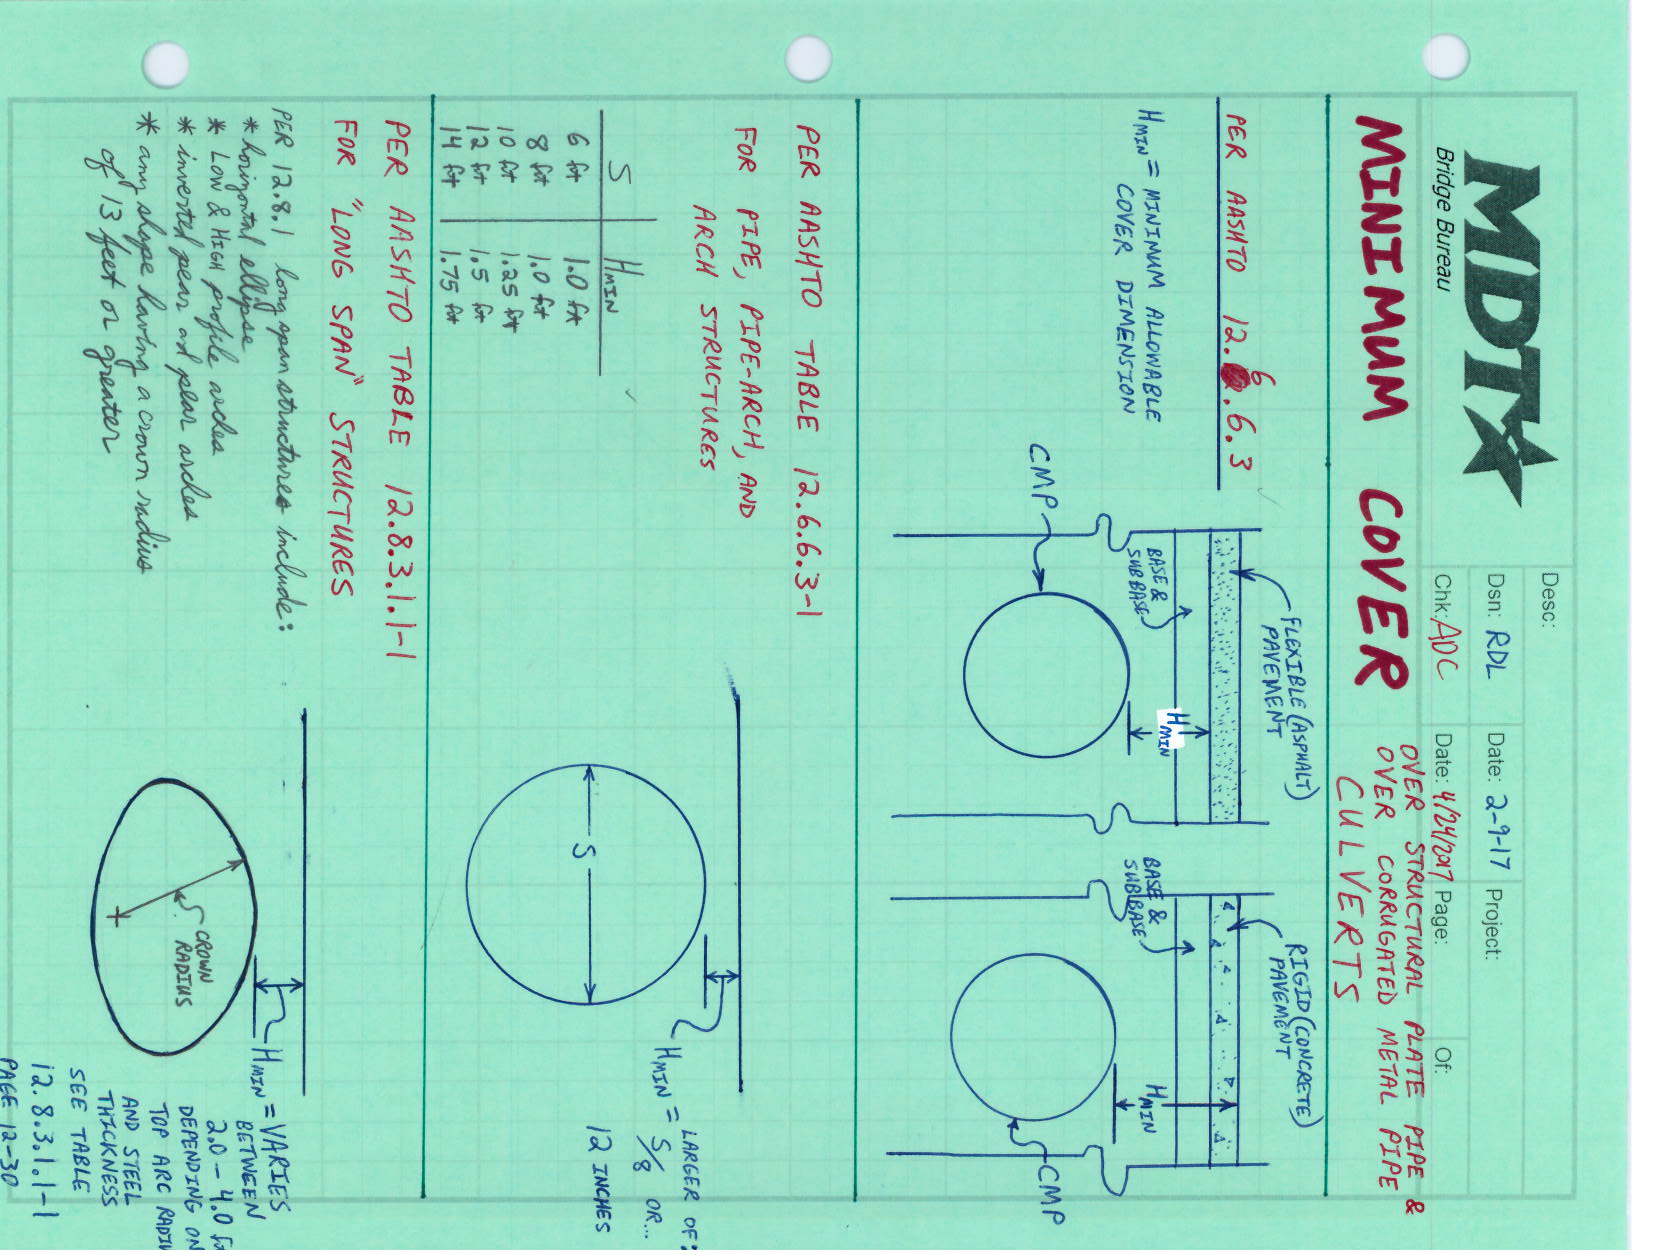 MDT
Bridge Bureau
Desc:
Dsn: RDL Date: 2-9-17 Project:
Chk: ADC Date: 4/24/2017 Page: Of:
MINIMUM COVER
OVER STRUCTURAL PLATE PIPE &
OVER CORRUGATED METAL PIPE
CULVERTS
PER AASHTO 12.6.6.3
HMIN = MINIMUM ALLOWABLE
COVER DIMENSION
FLEXIBLE (ASPHALT)
PAVEMENT
BASE &
SUBBASE
HMIN
CMP
RIGID (CONCRETE)
PAVEMENT
BASE &
SUBBASE
HMIN
CMP
PER AASHTO TABLE 12.6.6.3-1
FOR PIPE, PIPE-ARCH, AND
ARCH STRUCTURES
S HMIN
6 ft 1.0 ft
8 ft 1.0 ft
10 ft 1.25 ft
12 ft 1.5 ft
14 ft 1.75 ft
S
LARGER OF:
HMIN = S/8 OR...
12 INCHES
PER AASHTO TABLE 12.8.3.1.1-1
FOR "LONG SPAN" STRUCTURES
PER 12.8.1 long span structures include:
* horizontal ellipse
* LOW & HIGH profile arches
* inverted pear and pear arches
* any shape having a crown radius
of 13 feet or greater
CROWN
RADIUS
HMIN = VARIES
BETWEEN
2.0 - 4.0 ft
DEPENDING ON
TOP ARC
AND STEEL
THICKNESS
SEE TABLE
12.8.3.1.1-1
PAGE 12-30